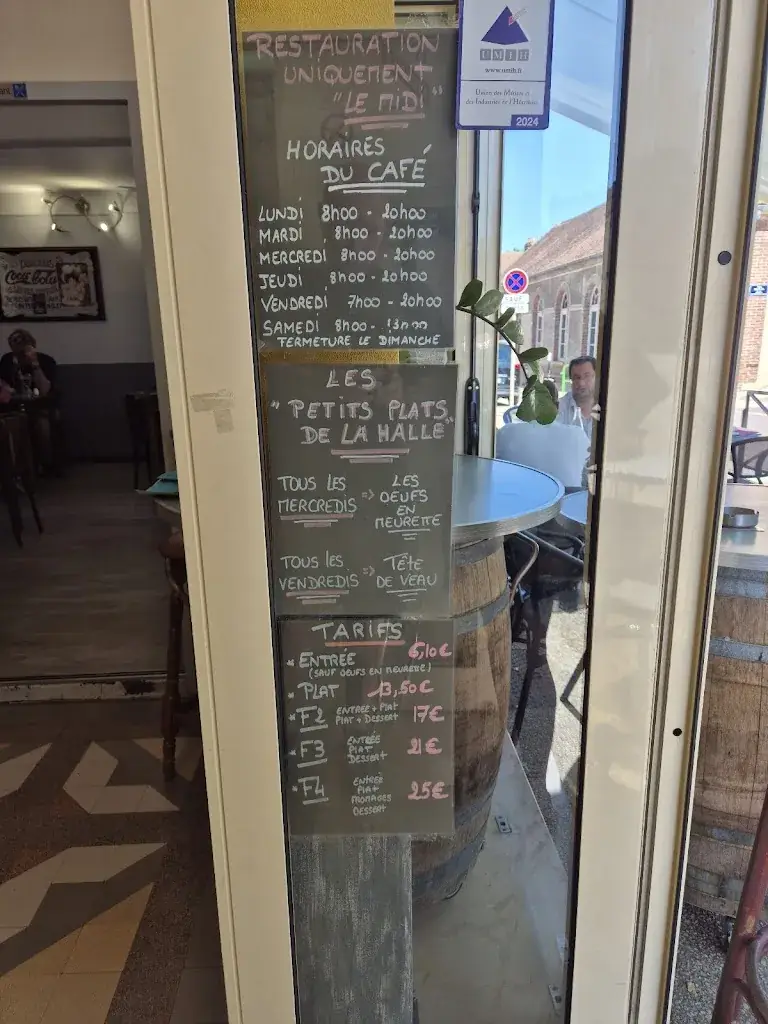 RESTAURATION
UNIQUEMENT
"LE MIDI"
HORAIRES
DU CAFÉ
LUNDI 8h00 - 20h00
MARDI 8h00 - 20h00
MERCREDI 8h00 - 20h00
JEUDI 8h00 - 20h00
VENDREDI 7h00 - 20h00
SAMEDI 8h00 - 13h00
FERMETURE LE DIMANCHE
LES
"PETITS PLATS
DE LA HALLE"
TOUS LES MERCREDIS => LES OEUFS EN MEURETTE
TOUS LES VENDREDIS => TÊTE DE VEAU
TARIFS
* ENTRÉE 6,10€
(SAUF OEUFS EN MEURETTE)
* PLAT 13,50€
* F2 ENTREE + PLAT 17€
PLAT + DESSERT
* F3 ENTRÉE PLAT DESSERT 21€
* F4 ENTREE PLAT FROMAGES DESSERT 25€
UMIH
www.umih.fr
Union des Métiers et
des Industries de l'Hôtellerie
2024
Coca-Cola
SAUF